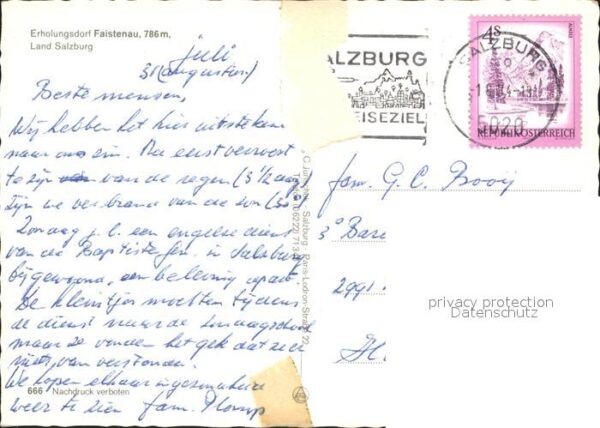 Erholungsdorf Faistenau, 786 m,
Land Salzburg
juli
31 (augustus)
Beste mensen,
Wij hebben het hier uitstekend
naar ons zin. Na eerst verrot
te zijn van de regen (3 1/2 dag)
zijn we verbrand van de zon
Zondag j.l. een engelse dienst
van de Baptistengem. in Salzburg
bijgewoond, een beleving apart
De kleintjes mochten tijdens
de dienst naar de zondagschool
maar ze vonden het gek dat ze er
niets van verstonden.
We hopen elkaar in gezondheid
weer te zien fam. Plomp
666 Nachdruck verboten
ALZBURG
EISEZIEL
SALZBURG
5020
4S
REPUBLIK ÖSTERREICH
fam. G. C. Booij
3e Bare
2991
privacy protection
Datenschutz